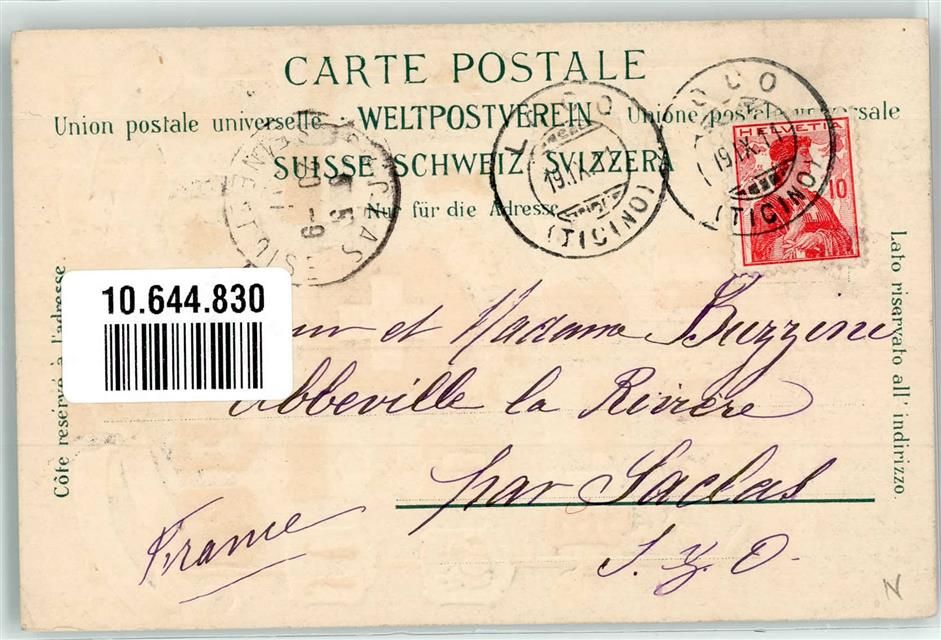 CARTE POSTALE
Union postale universelle. WELTPOSTVEREIN Unione postale universale
SUISSE SCHWEIZ SVIZZERA
Nur für die Adresse.
(TICINO)
19.IX.11
(TICINO)
HELVETIA
10
SACLAS
10.644.830
Côté réservé à l'adresse.
Lato riservato all' indirizzo.
et Madame Buzzini
Abbeville la Rivière
par Saclas
S. & O.
France
N